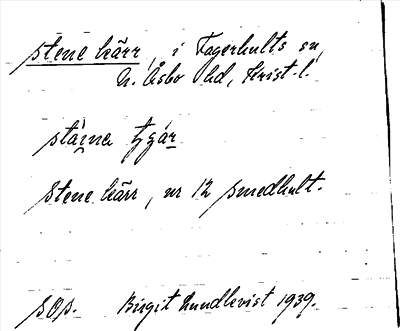 stene kärr, i Fagerhults sn,
N. Åsbo hd, Krist. l.
stä̀ina tjár
Stene kärr, nr 12 Smedhult.
sOs. Birgit Lundkvist 1939.